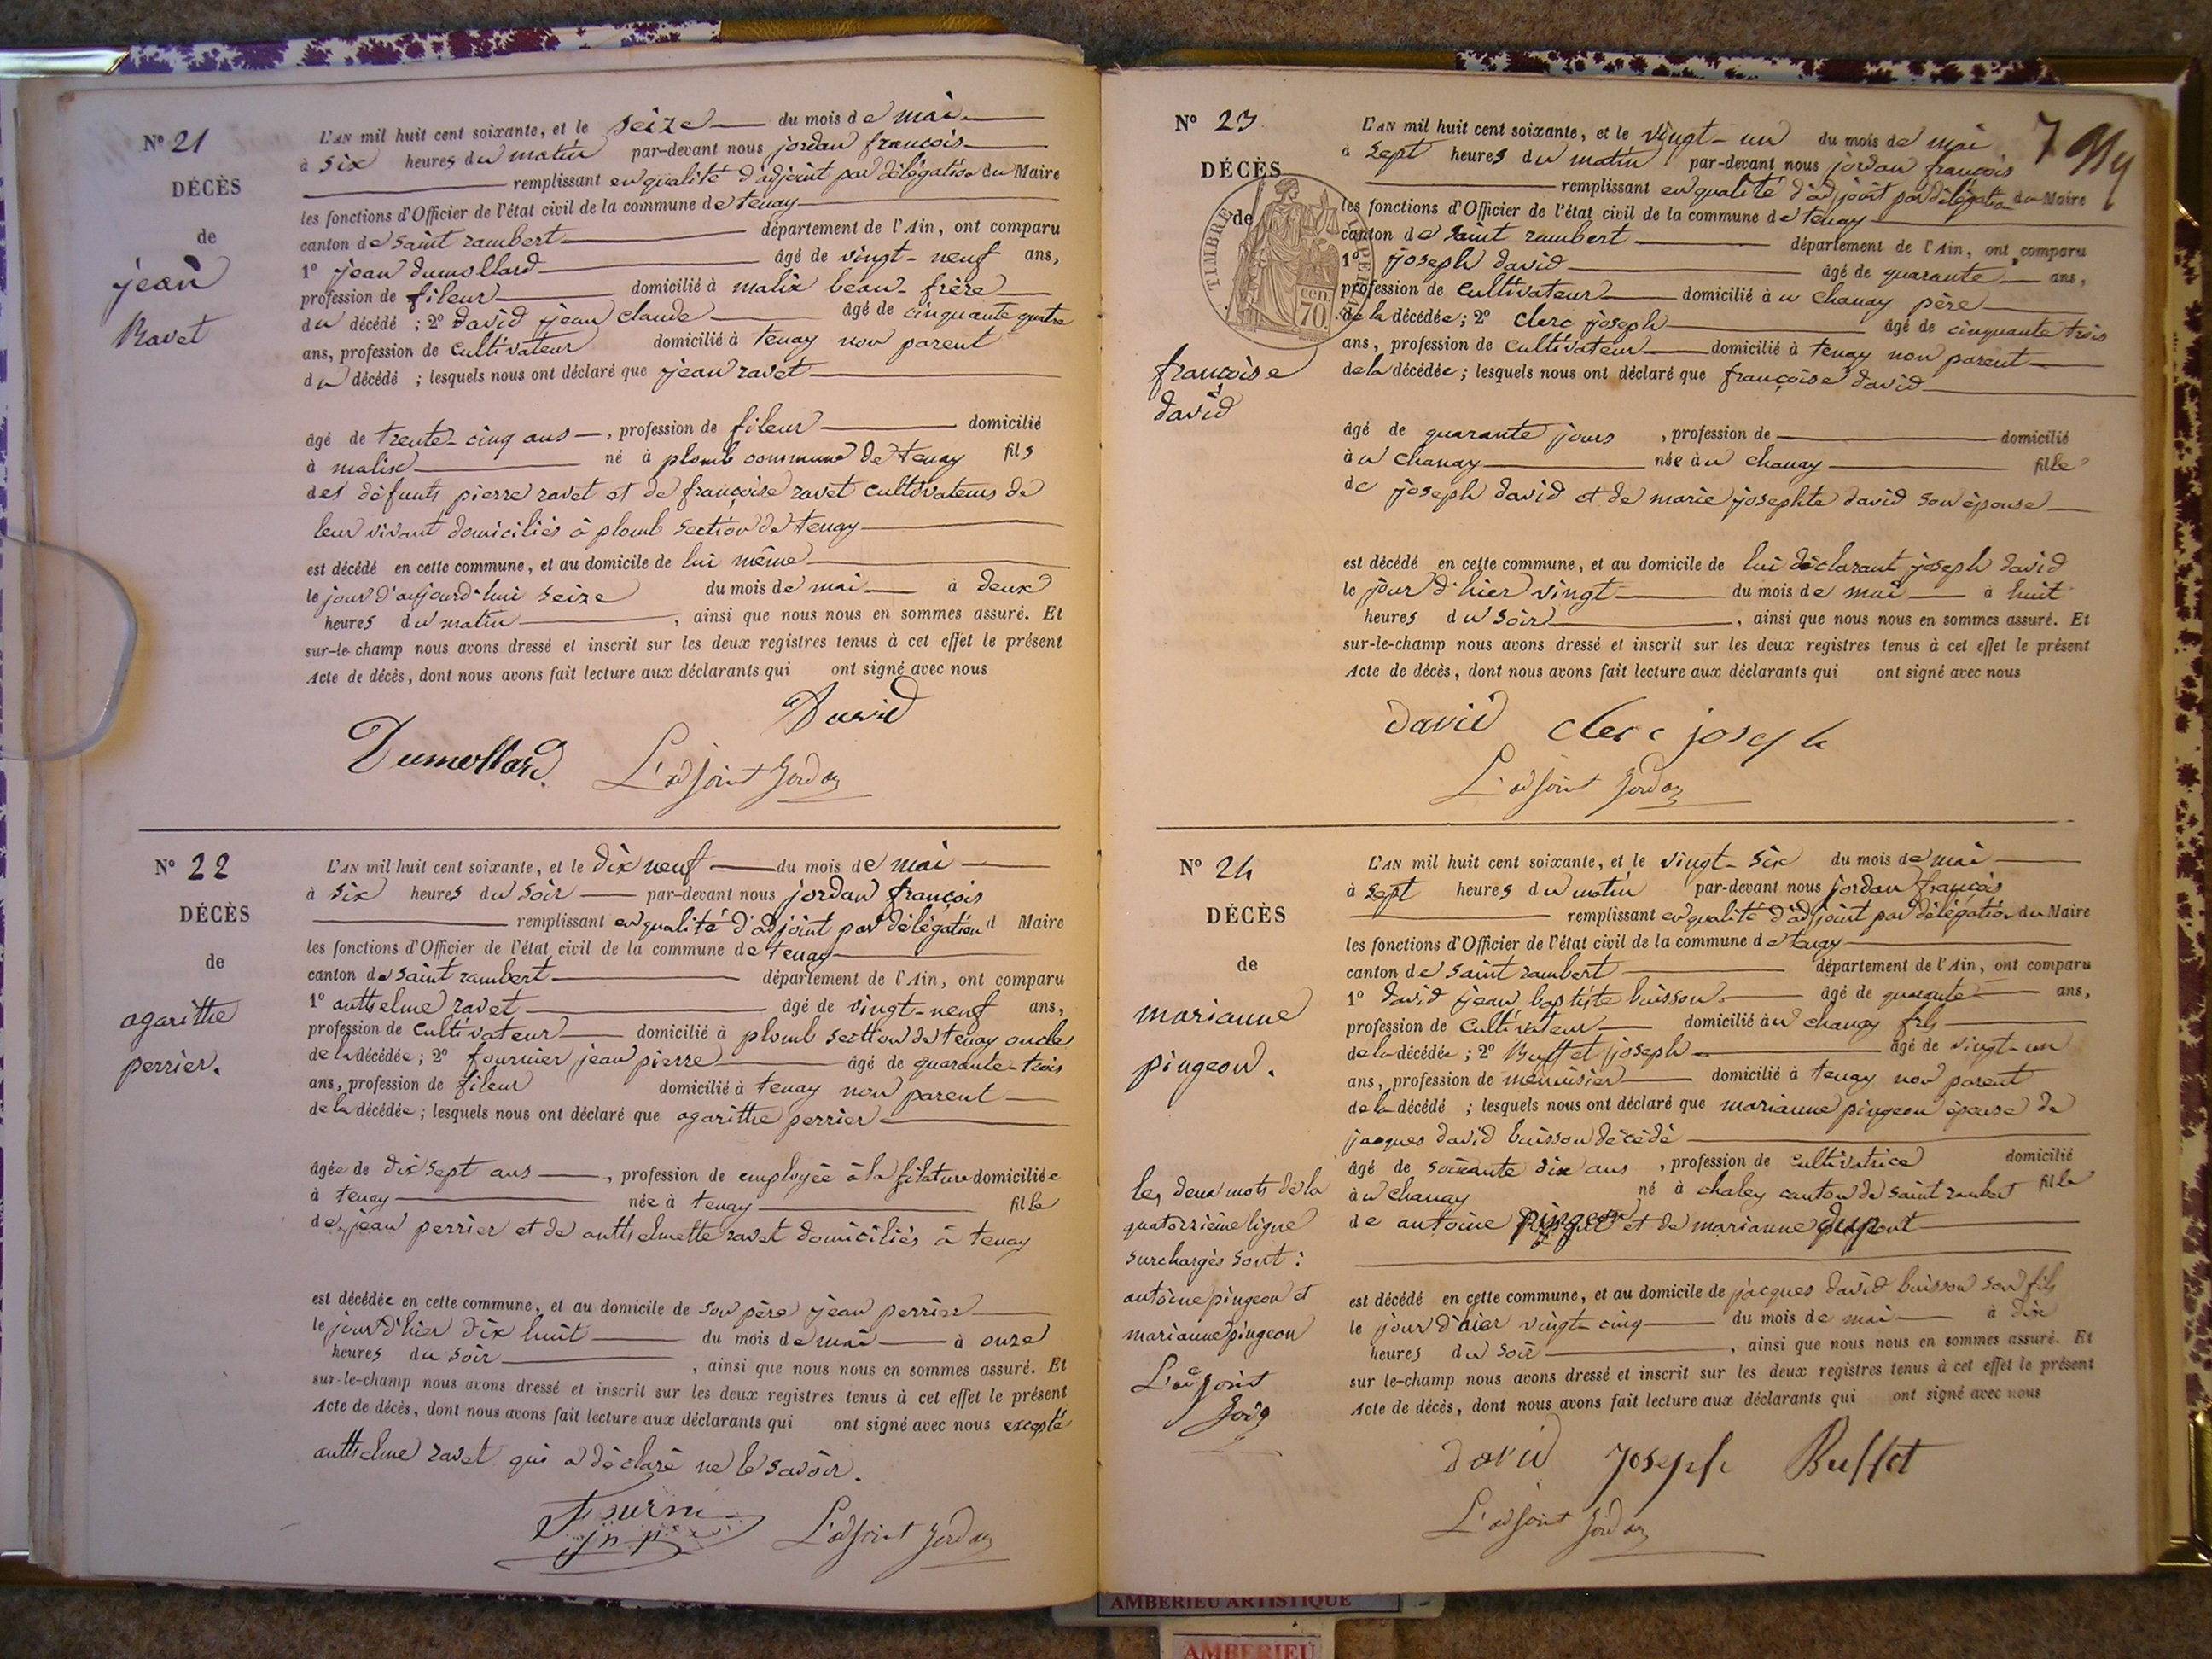 N° 21
DÉCÈS
de
jean
Ravet
L'AN mil huit cent soixante, et le seize du mois de mai
à six heures du matin par-devant nous jordan françois
remplissant en qualité d'adjoint par délégation du Maire
les fonctions d'Officier de l'état civil de la commune de tenay
canton de saint rambert département de l'Ain, ont comparu
1° jean dumollard âgé de vingt-neuf ans,
profession de fileur domicilié à malix beau-frère
du décédé ; 2° david jean claude âgé de cinquante quatre
ans, profession de cultivateur domicilié à tenay non parent
du décédé ; lesquels nous ont déclaré que jean ravet
âgé de trente-cinq ans, profession de fileur domicilié
à malix né à plomb commune de tenay fils
des défunts pierre ravet et de françoise ravet cultivateurs de
leur vivant domiciliés à plomb section de tenay
est décédé en cette commune, et au domicile de lui même
le jour d'aujourd'hui seize du mois de mai à deux
heures du matin, ainsi que nous nous en sommes assuré. Et
sur-le-champ nous avons dressé et inscrit sur les deux registres tenus à cet effet le présent
Acte de décès, dont nous avons fait lecture aux déclarants qui ont signé avec nous
David
Dumollard L'adjoint Jordan
N° 22
DÉCÈS
de
agarithe
perrier.
L'AN mil huit cent soixante, et le dix neuf du mois de mai
à six heures du soir par-devant nous jordan françois
remplissant en qualité d'adjoint par délégation d Maire
les fonctions d'Officier de l'état civil de la commune de tenay
canton de saint rambert département de l'Ain, ont comparu
1° anthelme ravet âgé de vingt-neuf ans,
profession de cultivateur domicilié à plomb section de tenay oncle
de la décédée ; 2° fournier jean pierre âgé de quarante-trois
ans, profession de fileur domicilié à tenay non parent
de la décédée ; lesquels nous ont déclaré que agarithe perrier
âgée de dix sept ans, profession de employée à la filature domiciliée
à tenay née à tenay fille
de jean perrier et de anthelmette ravet domiciliés à tenay
est décédée en cette commune, et au domicile de son père jean perrier
le jour d'hier dix huit du mois de mai à onze
heures du soir, ainsi que nous nous en sommes assuré. Et
sur-le-champ nous avons dressé et inscrit sur les deux registres tenus à cet effet le présent
Acte de décès, dont nous avons fait lecture aux déclarants qui ont signé avec nous excepté
anthelme ravet qui a déclaré ne le savoir.
L'adjoint Jordan
N° 23
DÉCÈS
de
TIMBRE
cen.
70
françoise
david
L'AN mil huit cent soixante, et le vingt-un du mois de mai
à sept heures du matin par-devant nous jordan françois
remplissant en qualité d'adjoint par délégation du Maire
les fonctions d'Officier de l'état civil de la commune de tenay
canton de saint rambert département de l'Ain, ont comparu
1° joseph david âgé de quarante ans,
profession de cultivateur domicilié à u chanay père
de la décédée ; 2° clerc joseph âgé de cinquante trois
ans, profession de cultivateur domicilié à tenay non parent
de la décédée ; lesquels nous ont déclaré que françoise david
âgé de quarante jours, profession de domicilié
à u chanay née à u chanay fille
de joseph david et de marie josephte david son épouse
est décédé en cette commune, et au domicile de lui déclarant joseph david
le jour d'hier vingt du mois de mai à huit
heures du soir, ainsi que nous nous en sommes assuré. Et
sur-le-champ nous avons dressé et inscrit sur les deux registres tenus à cet effet le présent
Acte de décès, dont nous avons fait lecture aux déclarants qui ont signé avec nous
david clerc joseph
L'adjoint Jordan
N° 24
DÉCÈS
de
marianne
pingeon.
L'AN mil huit cent soixante, et le vingt-six du mois de mai
à sept heures du matin par-devant nous jordan françois
remplissant en qualité d'adjoint par délégation du Maire
les fonctions d'Officier de l'état civil de la commune de tenay
canton de saint rambert département de l'Ain, ont comparu
1° david jean baptiste buisson âgé de quarante ans,
profession de cultivateur domicilié à u chanay fils
de la décédée ; 2° Buffet joseph âgé de vingt-un
ans, profession de menuisier domicilié à tenay non parent
de la décédé ; lesquels nous ont déclaré que marianne pingeon épouse de
jacques david buisson décédé
âgé de soixante dix ans, profession de cultivatrice domicilié
à u chanay né à chaley canton de saint rambert fille
de antoine pingeon et de marianne
est décédé en cette commune, et au domicile de jacques david buisson son fils
le jour d'hier vingt-cinq du mois de mai à dix
heures du soir, ainsi que nous nous en sommes assuré. Et
sur le-champ nous avons dressé et inscrit sur les deux registres tenus à cet effet le présent
Acte de décès, dont nous avons fait lecture aux déclarants qui ont signé avec nous
les deux mots de la
quatorzième ligne
surchargés sont :
antoine pingeon et
marianne pingeon
L'adjoint
david Joseph Buffet
L'adjoint Jordan
AMBERIEU ARTISTIQUE
AMBERIEU